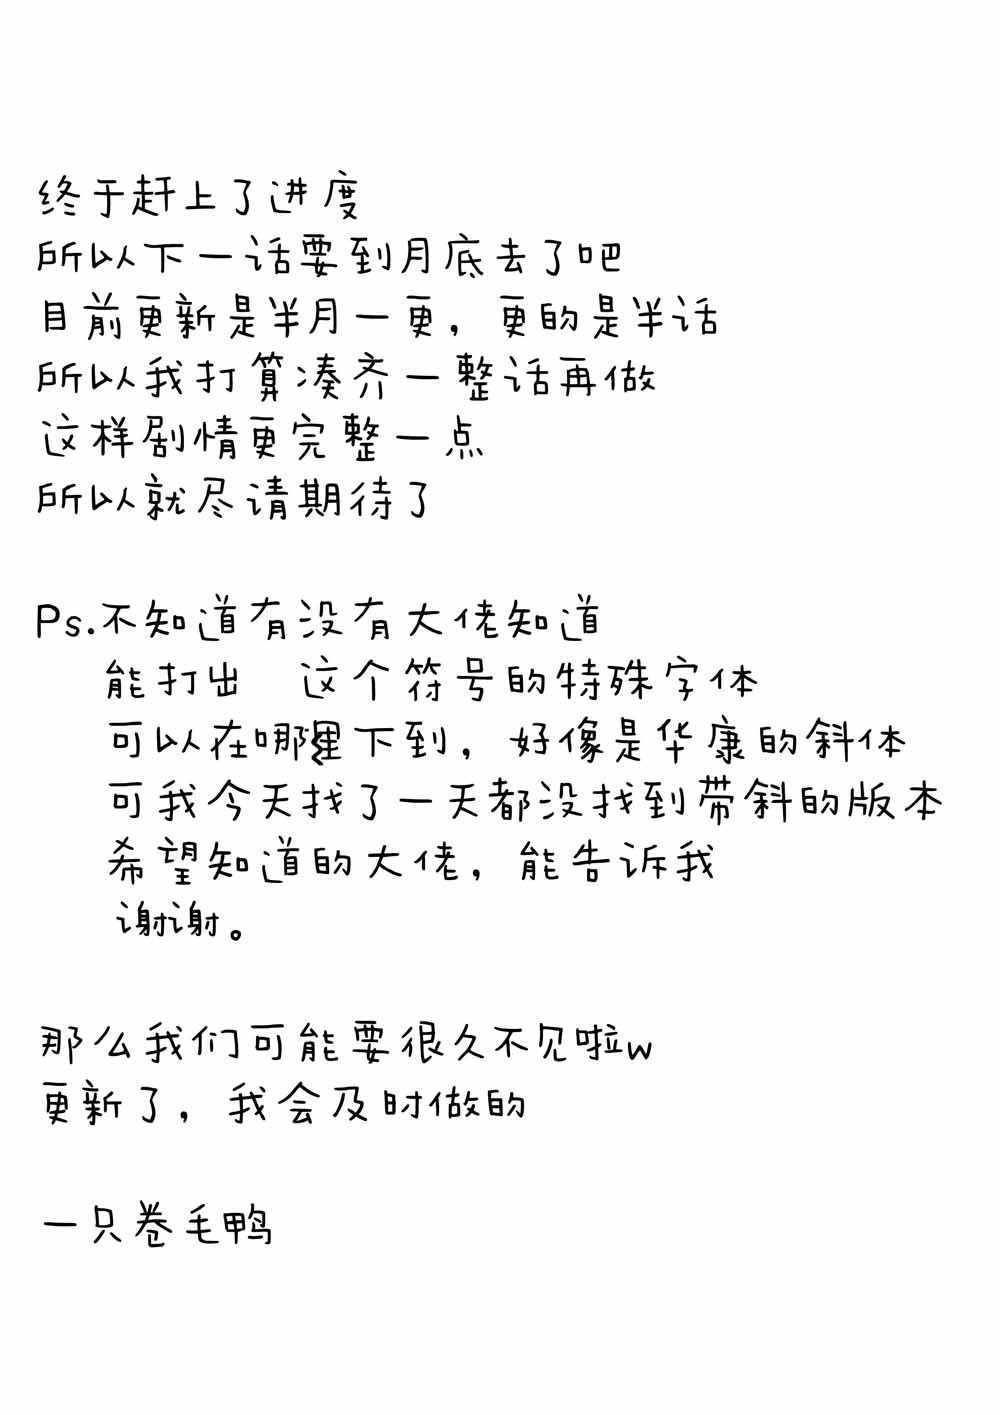 终于赶上了进度
所以下一话要到月底去了吧
目前更新是半月一更，更的是半话
所以我打算凑齐一整话再做
这样剧情更完整一点
所以就尽请期待了
Ps.不知道有没有大佬知道
能打出　这个符号的特殊字体
可以在哪里下到，好像是华康的斜体
可我今天找了一天都没找到带斜的版本
希望知道的大佬，能告诉我
谢谢。
那么我们可能要很久不见啦w
更新了，我会及时做的
一只卷毛鸭